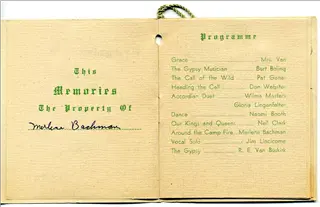 This
Memories
The Property Of
Merlene Bachman
Programme
Grace Mrs. Van
The Gypsy Musician Burt Boring
The Call of the Wild Pat Gonser
Heeding the Call Don Webster
Accordian Duet Wilma Martens
Gloria Lingenfelter
Dance Naomi Booth
Our Kings and Queens Nell Cheit
Around the Camp Fire Merlene Bachman
Vocal Solo Jim Linscomp
The Gypsy R. E. Van Buskirk